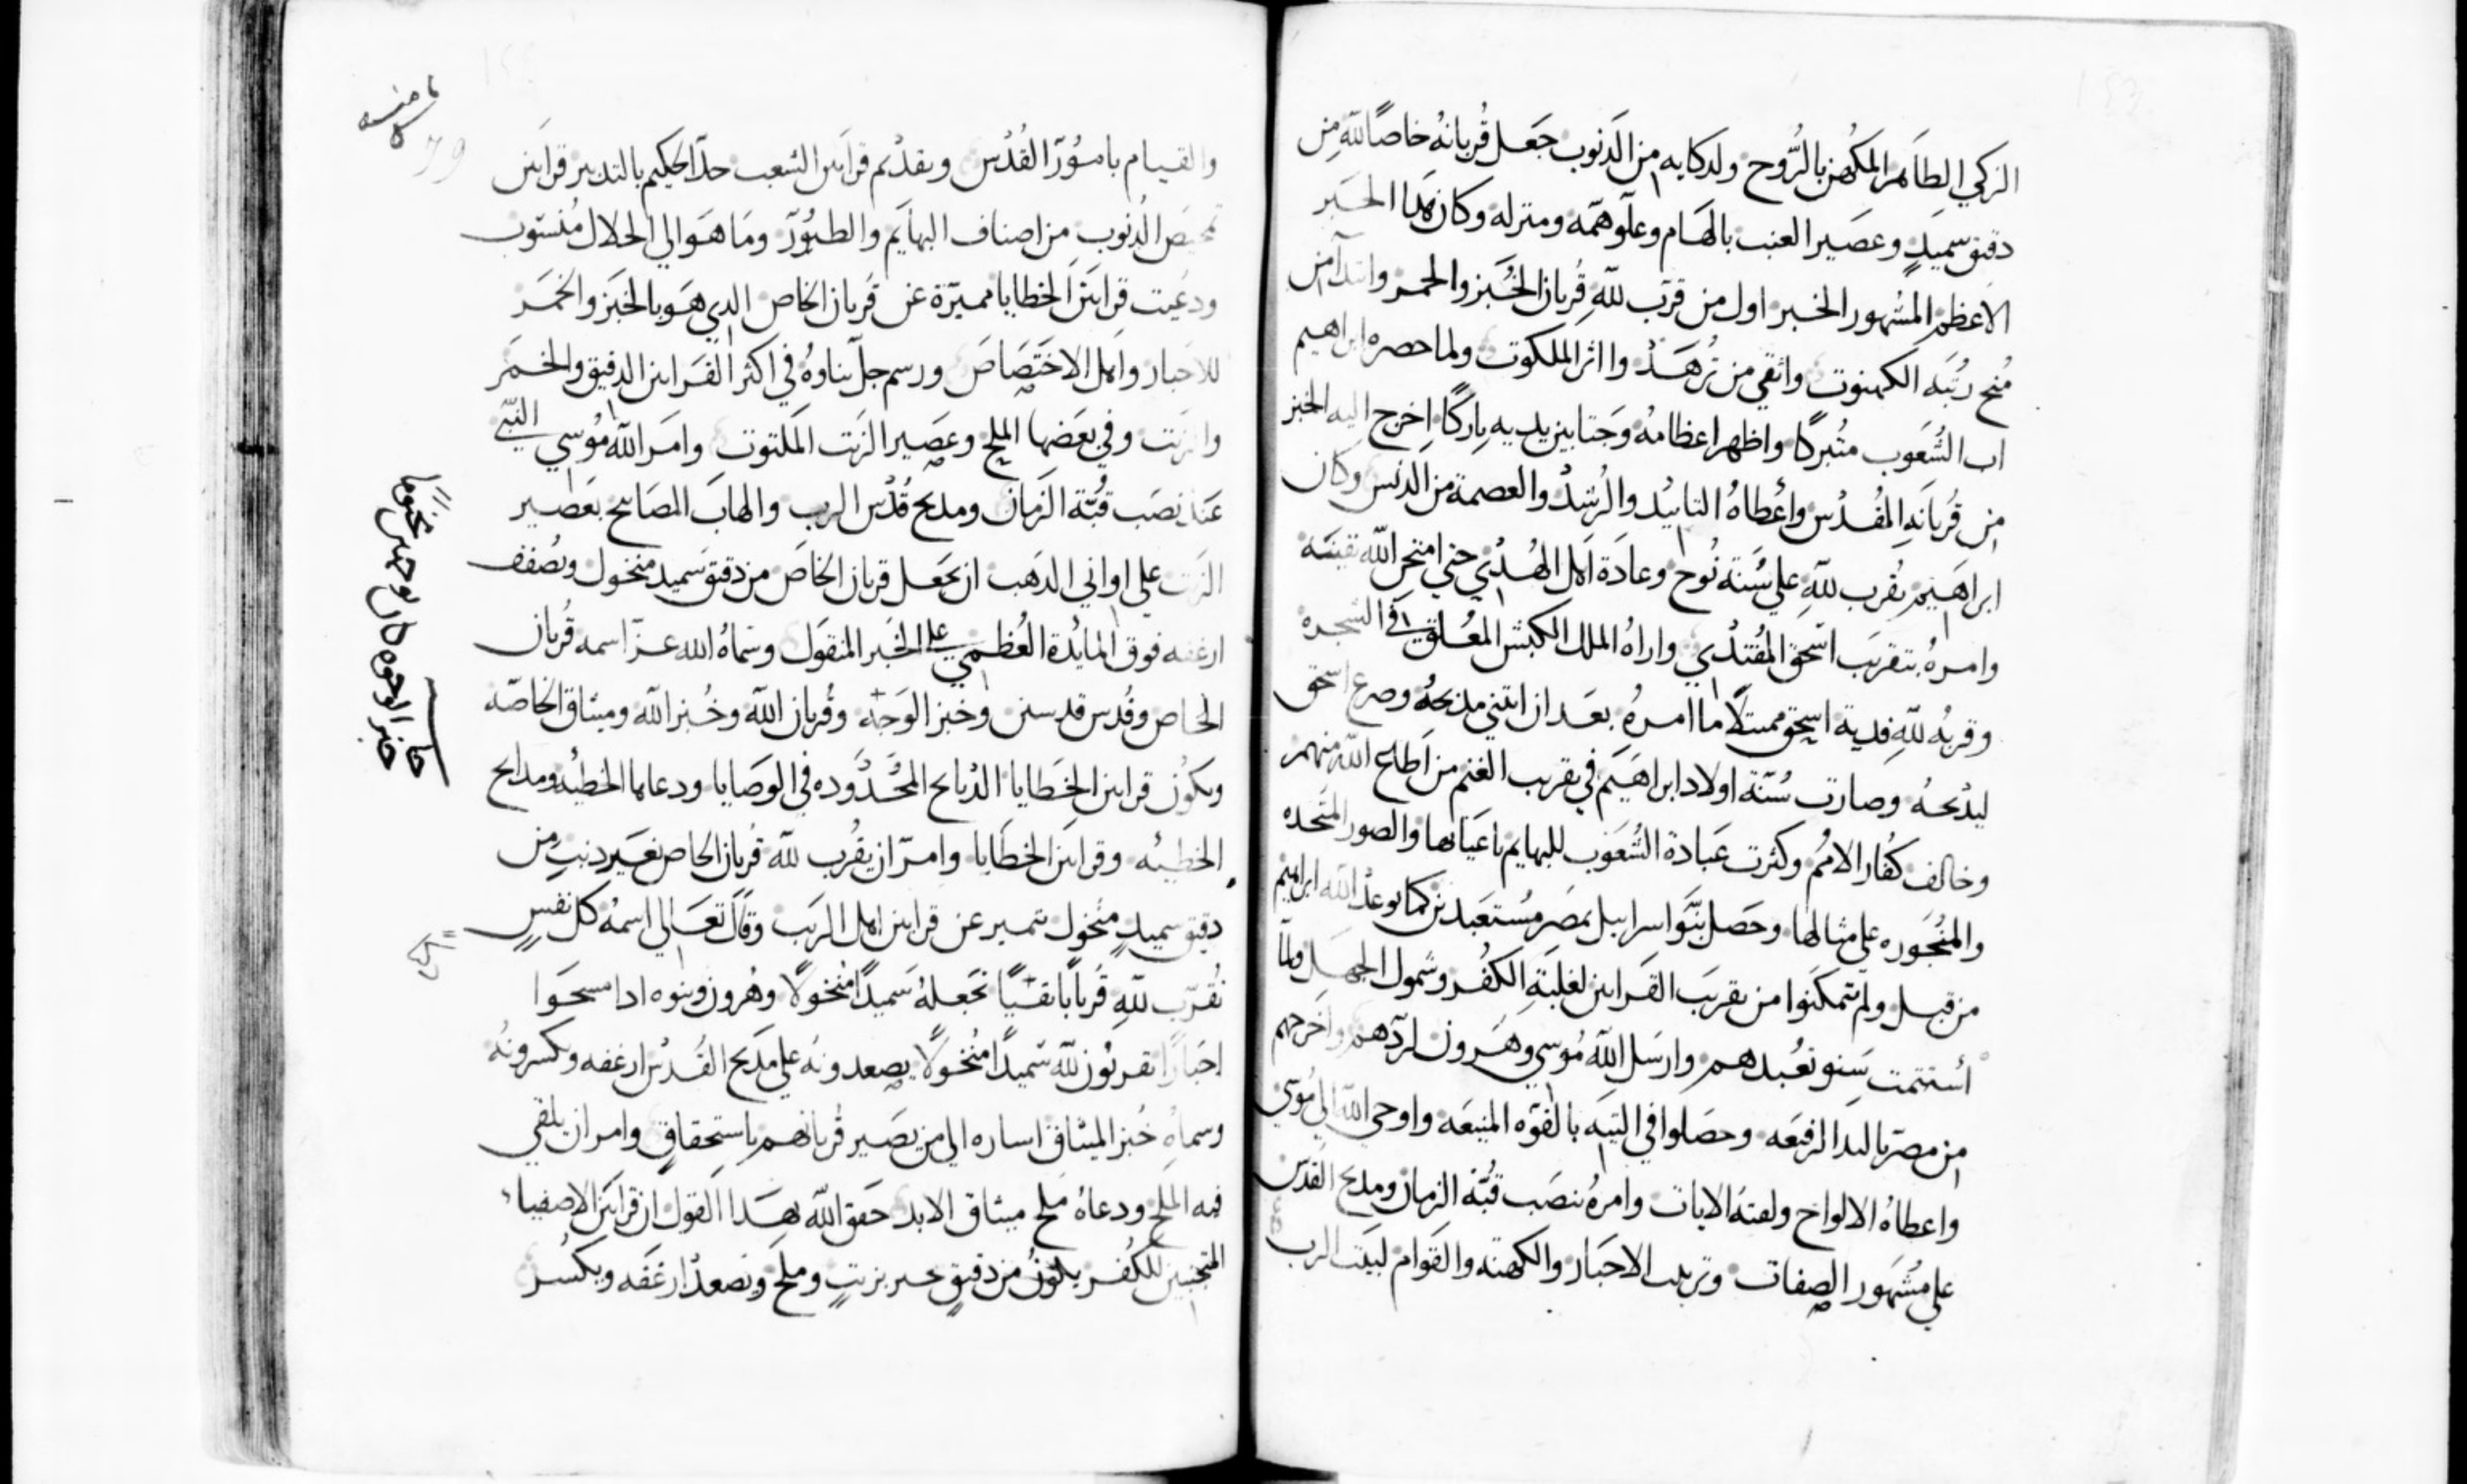 الزكي الطاهر المكهن بالروح ولدكايه من الدنوب جعل قربانه خاصًا لله من
دقيق سميدٍ وعصير العنب بالهام وعلو همه ومنزله وكان هدا الحبر
الاعظم المشهور الخبر اول من قرب لله قربان الخبز والخمر وابتدا من
مُنح رتبه الكهنوت واتقي من تزهد واثر الملكوت ولما حصره ابراهيم
اب الشعوب متبركًا واظهر اعظامه وجتا بين يديه باركًا اخرج اليه الخبز
من قربانه المقدس واعطاه التاييد والرشد والعصمة من الدنس وكان
ابراهيم يقرب لله علي سُنة نوح وعادة اهل الهدي حتي امتحن الله نفيسه
وامره بتقريب اسحق المفتدي واراه الملك الكبش المعلق في الشجره
وقربه لله فدية اسحق ممتثلًا ما امره بعد ان ابتني مدبحه وصرع اسحق
ليدبحه وصارت سُنة اولاد ابراهيم في تقريب الغنم من اطاع الله منهم
وخالف كفار الامم وكثرت عبادة الشعوب للبهايم باعيانها والصور المتخده
والمنجوره علي مثالها وحصل بنوا اسراييل بمصر مستعبدين كما توعد الله ابراهيم
من قبل ولم يتمكنوا من تقريب القرابين لغلبة الكفر وشمول الجهل ولما
استتمت سنو تعبدهم وارسل الله موسي وهرون لردهم واخرجهم
من مصر باليد الرفيعه وحصلوا في التيه بالقوه المنيعه واوحي الله الي موسي
واعطاه الالواح ولقنه الايات وامره بنصب قبة الزمان ومدبح القدس
علي مشهور الصفات وترتيب الاحبار والكهنه والقوام لبيت الرب
والقيام بامور القدس وتقديم قرابين الشعب حد الحكيم بالتدبير قرابين
تمحيص الدنوب من اصناف البهايم والطيور وما هو الي الحلال منسوب
ودعيت قرابين الخطايا مميزة عن قربان الخاص الدي هو بالخبز والخمر
للاحبار واهل الاختصاص ورسم جل ثناوه في اكثر القرابين الدقيق والخمر
والزيت وفي بعضها الملح وعصير الزيت الملتوت وامر الله موسي النبي
عند نصب قبة الزمان ومدبح قدس الرب والهاب المصابيح بعصير
الزيت علي اواني الدهب ان يجعل قربان الخاص من دقيق سميد منخول وتصفف
ارغفه فوق المايدة العظمي علي الخبر المنقول وسماه الله عز اسمه قربان
الخاص وقدس قدسين وخبز الوجه وقربان الله وخبز الله وميثاق الخاصه
وتكون قرابين الخطايا الدبايح المحدوده في الوصايا ودعاها الخطيه ومدابح
الخطيئه وقرابين الخطايا وامر ان يقرب لله قربان الخاص بغير دنبٍ من
دقيق سميدٍ منخول تتميز عن قرابين اهل الريب وقال تعالي اسمه كل نفسٍ
تقرب لله قربانًا نقيًا تجعله سميدًا منخولًا وهرون وبنوه ادا مسحوا
احبارًا يقربون لله سميدًا منخولًا يصعدونه علي مدبح القدس ارغفه ويكسرونه
وسماه خبز الميثاق اساره الي من يصير قربانهم باستحقاقٍ وامر ان يلقي
فيه الملح ودعاه ملح ميثاق الابد حقق الله بهدا القول ان قرابين الاصفياء
المتجنبين للكفر يكون من دقيقٍ بزيتٍ وملح وتصعد ارغفه ويكسر
79